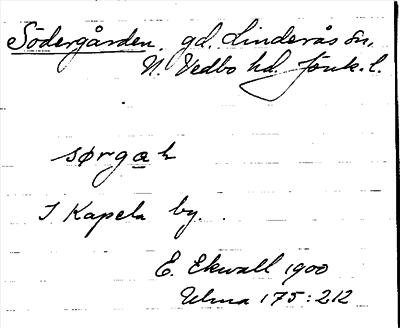 Södergården, gd. Linderås sn,
N. Vedbo hd. Jönk. l.
sørgah
I Kapela by.
E. Ekwall 1900
Ulma 175:212